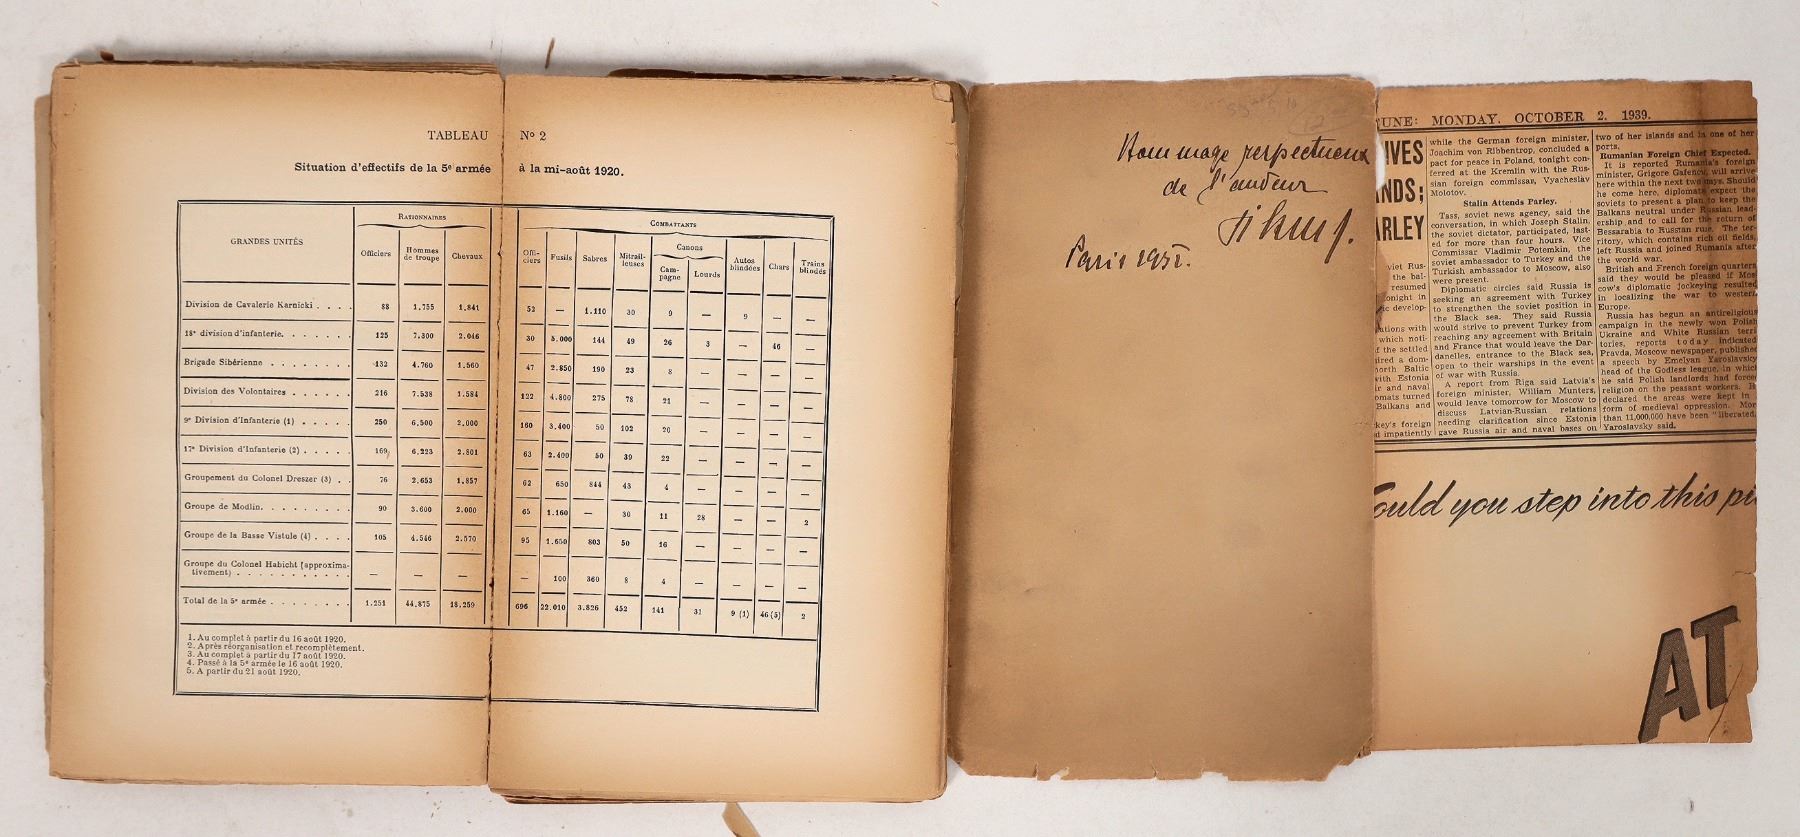 TABLEAU No 2
Situation d'effectifs de la 5e armée à la mi-août 1920.
GRANDES UNITÉS
RATIONNAIRES
Officiers Hommes de troupe Chevaux
COMBATTANTS
Offi-ciers Fusils Sabres Mitrail-leuses Canons Cam-pagne Lourds Autos blindées Chars Trains blindés
Division de Cavalerie Karnicki . . . . 88 1.755 1.841 52 — 1.110 30 9 — 9 — —
18e division d'infanterie. . . . . . . 125 7.300 2.046 30 5.000 144 49 26 3 — 46 —
Brigade Sibérienne . . . . . . 132 4.760 1.560 47 2.850 190 23 8 — — — —
Division des Volontaires . . . . . . 216 7.538 1.584 122 4.800 275 78 21 — — — —
9e Division d'Infanterie (1) . . . . . 250 6.500 2.000 160 3.400 50 102 20 — — — —
17e Division d'Infanterie (2) . . . . . 169 6.223 2.801 63 2.400 50 39 22 — — — —
Groupement du Colonel Dreszer (3) . . 76 2.653 1.857 62 650 844 43 4 — — — —
Groupe de Modlin. . . . . . . . . 90 3.600 2.000 65 1.160 — 30 11 28 — — 2
Groupe de la Basse Vistule (4) . . . . 105 4.546 2.570 95 1.650 803 50 16 — — — —
Groupe du Colonel Habicht (approxima-
tivement) . . . . . . . . . . — — — — 100 360 8 4 — — — —
Total de la 5e armée . . . . . . . . 1.251 44.875 18.259 696 22.010 3.826 452 141 31 9 (1) 46 (5) 2
1. Au complet à partir du 16 août 1920.
2. Après réorganisation et recomplètement.
3. Au complet à partir du 17 août 1920.
4. Passé à la 5e armée le 16 août 1920.
5. A partir du 21 août 1920.
Hommage respectueux
de l'auteur
Paris
UNE: MONDAY, OCTOBER 2, 1939.
IVES
NDS;
ARLEY
viet Rus-
the bal-
resumed
onight in
develop-
ations with
which noti-
f the settled
ired a dom-
north Baltic
with Estonia
ir and naval
omats turned
Balkans and
key's foreign
d impatiently
while the German foreign minister,
Joachim von Ribbentrop, concluded a
pact for peace in Poland, tonight con-
ferred at the Kremlin with the Rus-
sian foreign commissar, Vyacheslav
Molotov.
Stalin Attends Parley.
Tass, soviet news agency, said the
conversation, in which Joseph Stalin,
the soviet dictator, participated, last-
ed for more than four hours. Vice
Commissar Vladimir Potemkin, the
soviet ambassador to Turkey and the
Turkish ambassador to Moscow, also
were present.
Diplomatic circles said Russia is
seeking an agreement with Turkey
to strengthen the soviet position in
the Black sea. They said Russia
would strive to prevent Turkey from
reaching any agreement with Britain
and France that would leave the Dar-
danelles, entrance to the Black sea,
open to their warships in the event
of war with Russia.
A report from Riga said Latvia's
foreign minister, William Munters,
would leave tomorrow for Moscow to
discuss Latvian-Russian relations
needing clarification since Estonia
gave Russia air and naval bases on
two of her islands and in one of her
ports.
Rumanian Foreign Chief Expected.
It is reported Rumania's foreign
minister, Grigore Gafencu, will arrive
here within the next two days. Should
he come here, diplomats expect the
soviets to present a plan to keep the
Balkans neutral under Russian lead-
ership and to call for the return of
Bessarabia to Russian rule. The ter-
ritory, which contains rich oil fields,
left Russia and joined Rumania after
the world war.
British and French foreign quarters
said they would be pleased if Mos-
cow's diplomatic jockeying resulted
in localizing the war to western
Europe.
Russia has begun an antireligious
campaign in the newly won Polish
Ukraine and White Russian terri-
tories, reports today indicated.
Pravda, Moscow newspaper, published
a speech by Emelyan Yaroslavsky,
head of the Godless league, in which
he said Polish landlords had forced
religion on the peasant workers. He
declared the areas were kept in
form of medieval oppression. More
than 11,000,000 have been "liberated,"
Yaroslavsky said.
ould you step into this pi
AT